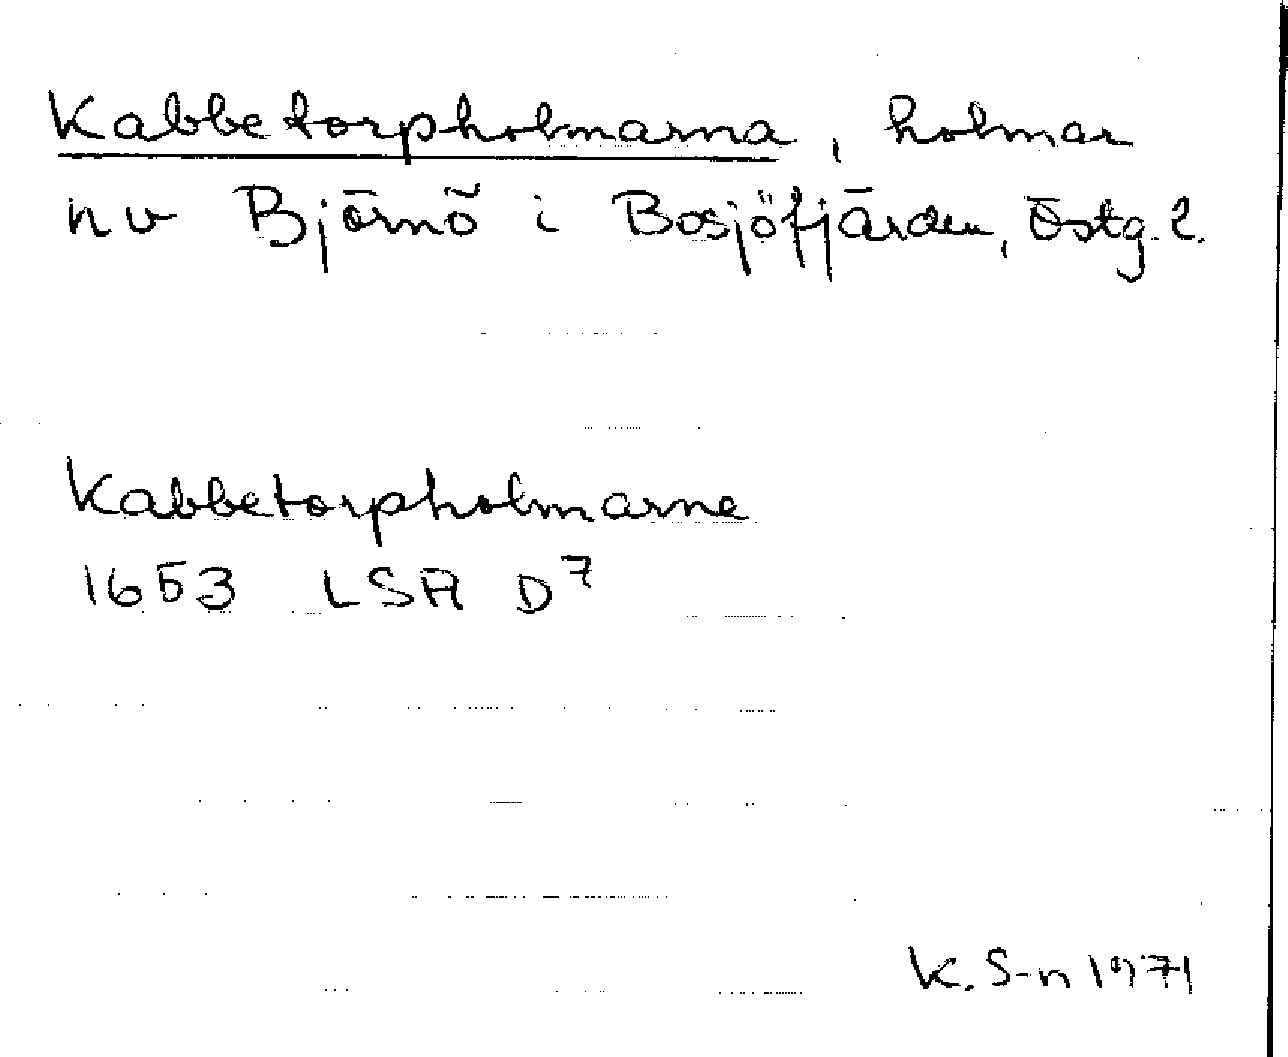 Kabbetorpholmarna, holmar
nv Björnö i Bosjöfjärden, Östg. l.
Kabbetorpholmarne
1653 LSA D7
K. S-n 1971